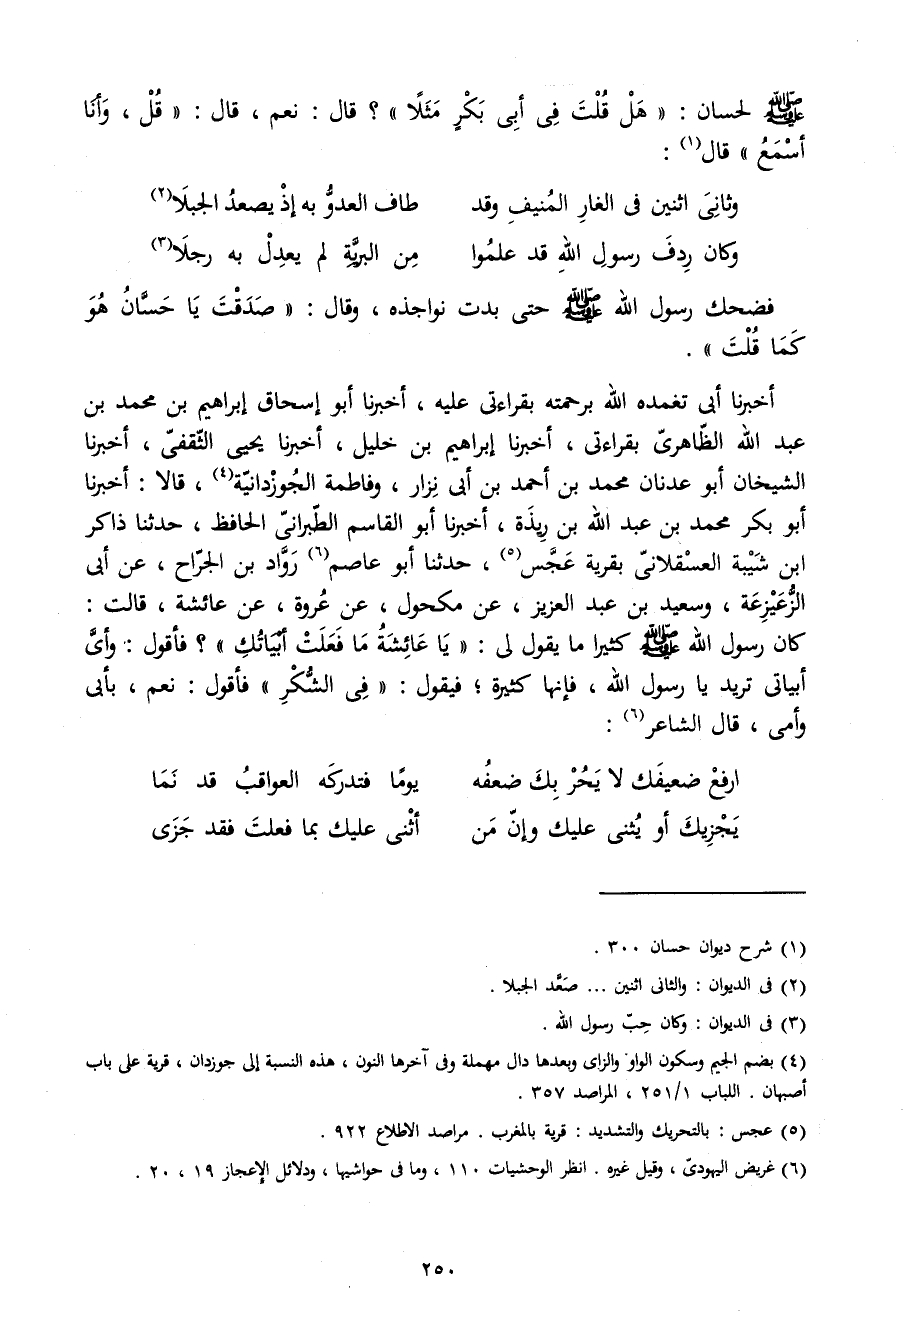 ﷺ لحسان : « هَلْ قُلْتَ فِى أَبِى بَكْرٍ مَثَلًا » ؟ قال : نعم ، قال : « قُلْ ، وَأنَا
أسْمَعُ » قال(١) :
وثانِىَ اثنين فى الغارِ المُنيفِ وقد    طاف العدوُّ به إذْ يصعدُ الجبلَا(٢)
وكان رِدفَ رسولِ اللهِ قد علمُوا    مِن البريَّةِ لم يعدِلْ به رجلَا(٣)
فضحك رسول الله ﷺ حتى بدت نواجذه ، وقال : « صَدَقْتَ يَا حَسَّانُ هُوَ
كَمَا قُلْتَ » .
أخبرنا أبى تغمده الله برحمته بقراءتى عليه ، أخبرنا أبو إسحاق إبراهيم بن محمد بن
عبد الله الظّاهرىّ بقراءتى ، أخبرنا إبراهيم بن خليل ، أخبرنا يحيى الثّقفىّ ، أخبرنا
الشيخان أبو عدنان محمد بن أحمد بن أبى نِزار ، وفاطمة الجُوزْدانيّة(٤) ، قالا : أخبرنا
أبو بكر محمد بن عبد الله بن رِيذَة ، أخبرنا أبو القاسم الطّبرانىّ الحافظ ، حدثنا ذاكر
ابن شَيْبة العسْقلانىّ بقرية عَجَّس(٥) ، حدثنا أبو عاصم(٦) رَوَّاد بن الجَرّاح ، عن أبى
الزُّعَيْزِعَة ، وسعيد بن عبد العزيز ، عن مكحول ، عن عُروة ، عن عائشة ، قالت :
كان رسول الله ﷺ كثيرا ما يقول لى : « يَا عَائِشَةُ مَا فَعَلَتْ أبْيَاتُكِ » ؟ فأقول : وأىَّ
أبياتى تريد يا رسول الله ، فإنها كثيرة ؛ فيقول : « فِى الشُّكْرِ » فأقول : نعم ، بأبى
وأمى ، قال الشاعر(٦) :
ارفعْ ضعيفَك لا يَحُرْ بِكَ ضعفُه    يومًا فتدركَه العواقبُ قد نَمَا
يَجْزِيكَ أو يُثنى عليك وإنّ مَن    أثْنى عليك بما فعلتَ فقد جَزَى
(١) شرح ديوان حسان ٣٠٠ .
(٢) فى الديوان : والثانى اثنين ... صَعَّد الجبلا .
(٣) فى الديوان : وكان حِبّ رسول الله .
(٤) بضم الجيم وسكون الواو والزاى وبعدها دال مهملة وفى آخرها النون ، هذه النسبة إلى جوزدان ، قرية على باب
أصبهان . اللباب ٢٥١/١ ، المراصد ٣٥٧ .
(٥) عجس : بالتحريك والتشديد : قرية بالمغرب . مراصد الاطلاع ٩٢٢ .
(٦) غريض اليهودىّ ، وقيل غيره . انظر الوحشيات ١١٠ ، وما فى حواشيها ، ودلائل الإعجاز ١٩ ، ٢٠ .
٢٥٠